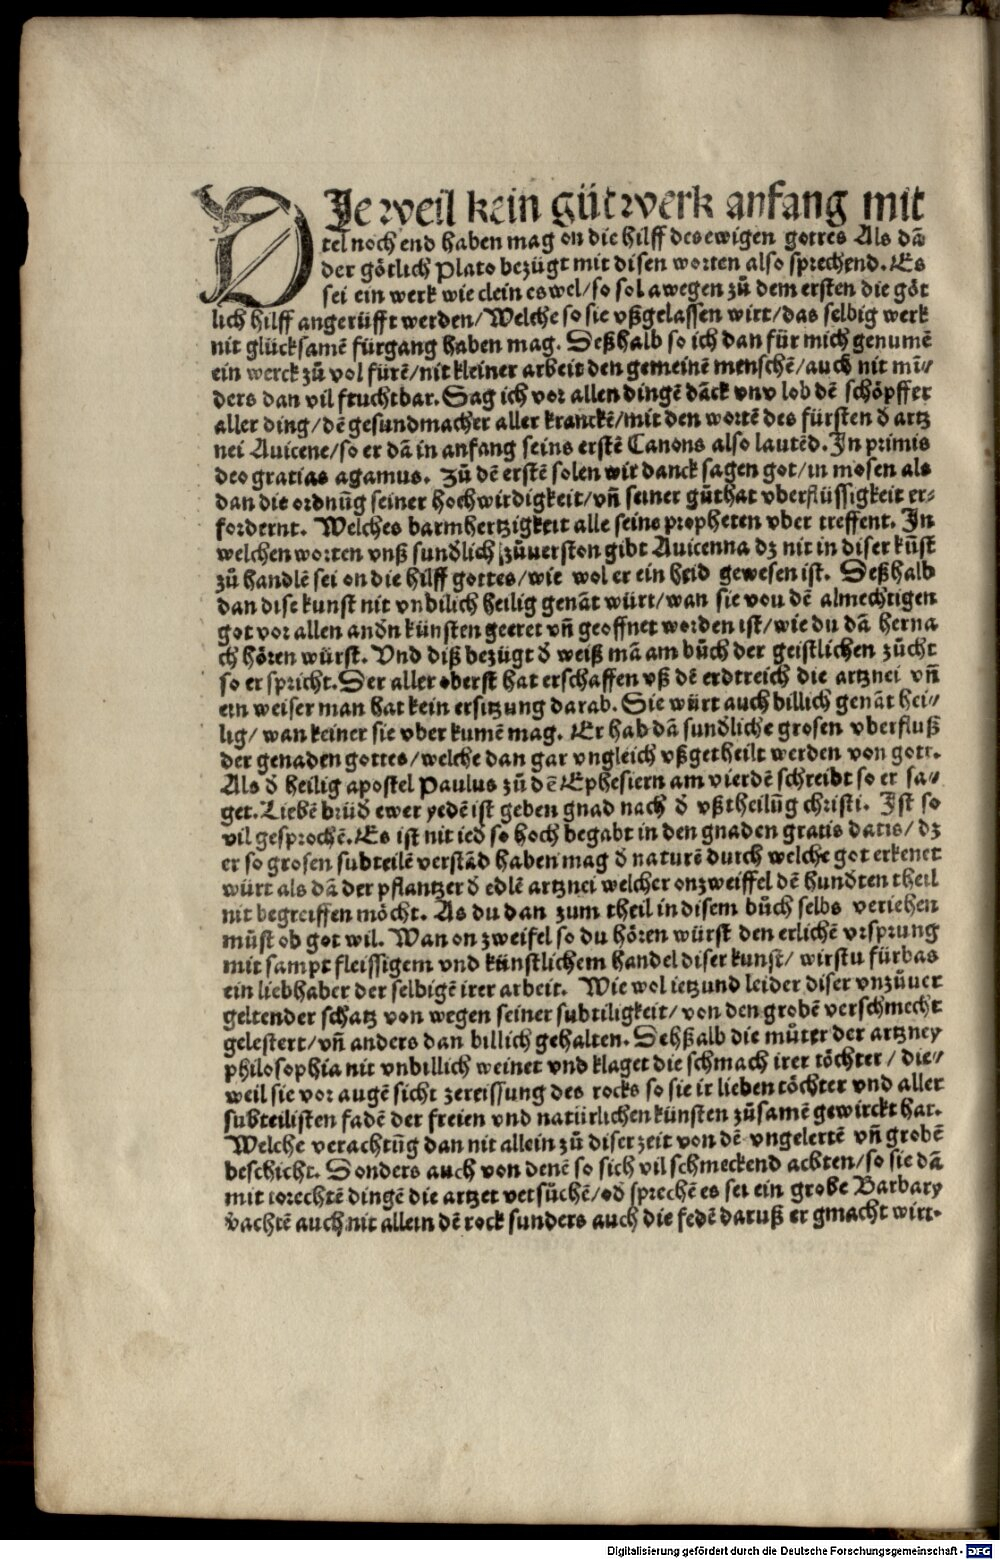 DIe weil kein gůt werk anfang mit
tel noch end haben mag on die hilff des ewigen gottes Als dā
der götlich Plato bezügt mit disen worten also sprechend. Es
sei ein werk wie clein es wel/so sol a wegen zů dem ersten die göt
lich hilff angerüfft werden/Welche so sie vßgelassen wirt/das selbig werk
nit glücksamē fürgang haben mag. Deßhalb so ich dan für mich genumē
ein werck zů vol fürē/nit kleiner arbeit den gemeinē menschē/auch nit mī/
ders dan vil fruchtbar. Sag ich vor allen dingē dāck vnv lob dē schöpffer
aller ding/dē gesundmacher aller kranckē/mit den wortē des fürsten d artz
nei Auicene/so er dā in anfang seins erstē Canons also lautēd. In primis
deo gratias agamus. Zů dē erstē solen wir danck sagen got/in mosen als
dan die ordnūg seiner hochwirdigkeit/vn̄ seiner gůthat vberflüssigkeit er⸗
fordernt. Welches barmhertzigkeit alle seine propheten vber treffent. In
welchen worten vnß sundlich zůuerston gibt Auicenna dz nit in diser kūst
zů handlē sei on die hilff gottes/wie wol er ein heid gewesen ist. Deßhalb
dan dise kunst nit vnbilich heilig genāt würt/wan sie vou dē almechtigen
got vor allen andn künsten geeret vn̄ geoffnet worden ist/wie du dā herna
ch hören würst. Vnd diß bezügt d weiß mā am bůch der geistlichen zůcht
so er spricht. Der aller oberst hat erschaffen vß dē erdtreich die artznei vn̄
ein weiser man hat kein ersitzung darab. Sie würt auch billich genāt hei⸗
lig/wan keiner sie vber kumē mag. Er hab dā sundliche grosen vberfluß
der genaden gottes/welche dan gar vngleich vßgetheilt werden von gott.
Als d heilig apostel Paulus zů dē Ephesiern am vierdē schreibt so er sa⸗
get. Liebē brüd ewer yedē ist geben gnad nach d vßtheilūg christi. Ist so
vil gesprochē. Es ist nit ied so hoch begabt in den gnaden gratis datis/dz
er so grosen subteilē verstād haben mag d naturē durch welche got erkenet
würt als dā der pflantzer d edlē artznei welcher onzweiffel dē hundten theil
nit begreiffen möcht. As du dan zum theil in disem bůch selbs veriehen
můst ob got wil. Wan on zweifel so du hören würst den erlichē vrsprung
mit sampt fleissigem vnd künstlichem handel diser kunst/wirstu fürbas
ein liebhaber der selbigē irer arbeit. Wie wol ietzund leider diser vnzůuer
geltender schatz von wegen seiner subtiligkeit/von den grobē verschmecht
gelestert/vn̄ anders dan billich gehalten. Dehßalb die můter der artzney
philosophia nit vnbillich weinet vnd klaget die schmach irer töchter/die⸗
weil sie vor augē sicht zereissung des rocks so sie ir lieben töchter vnd aller
subteilisten fadē der freien vnd natürlichen künsten zůsamē gewirckt hat.
Welche verachtūg dan nit allein zů diser zeit von dē vngelertē vn̄ grobē
beschicht. Sonders auch von denē so sich vil schmeckend achten/so sie dā
mit torechtē dingē die artzet versůchē/od sprechē es sei ein grobe Barbary
vachtē auch nit allein dē rock sunders auch die fedē daruß er gmacht wirt.
Digitalisierung gefördert durch die Deutsche Forschungsgemeinschaft - DFG